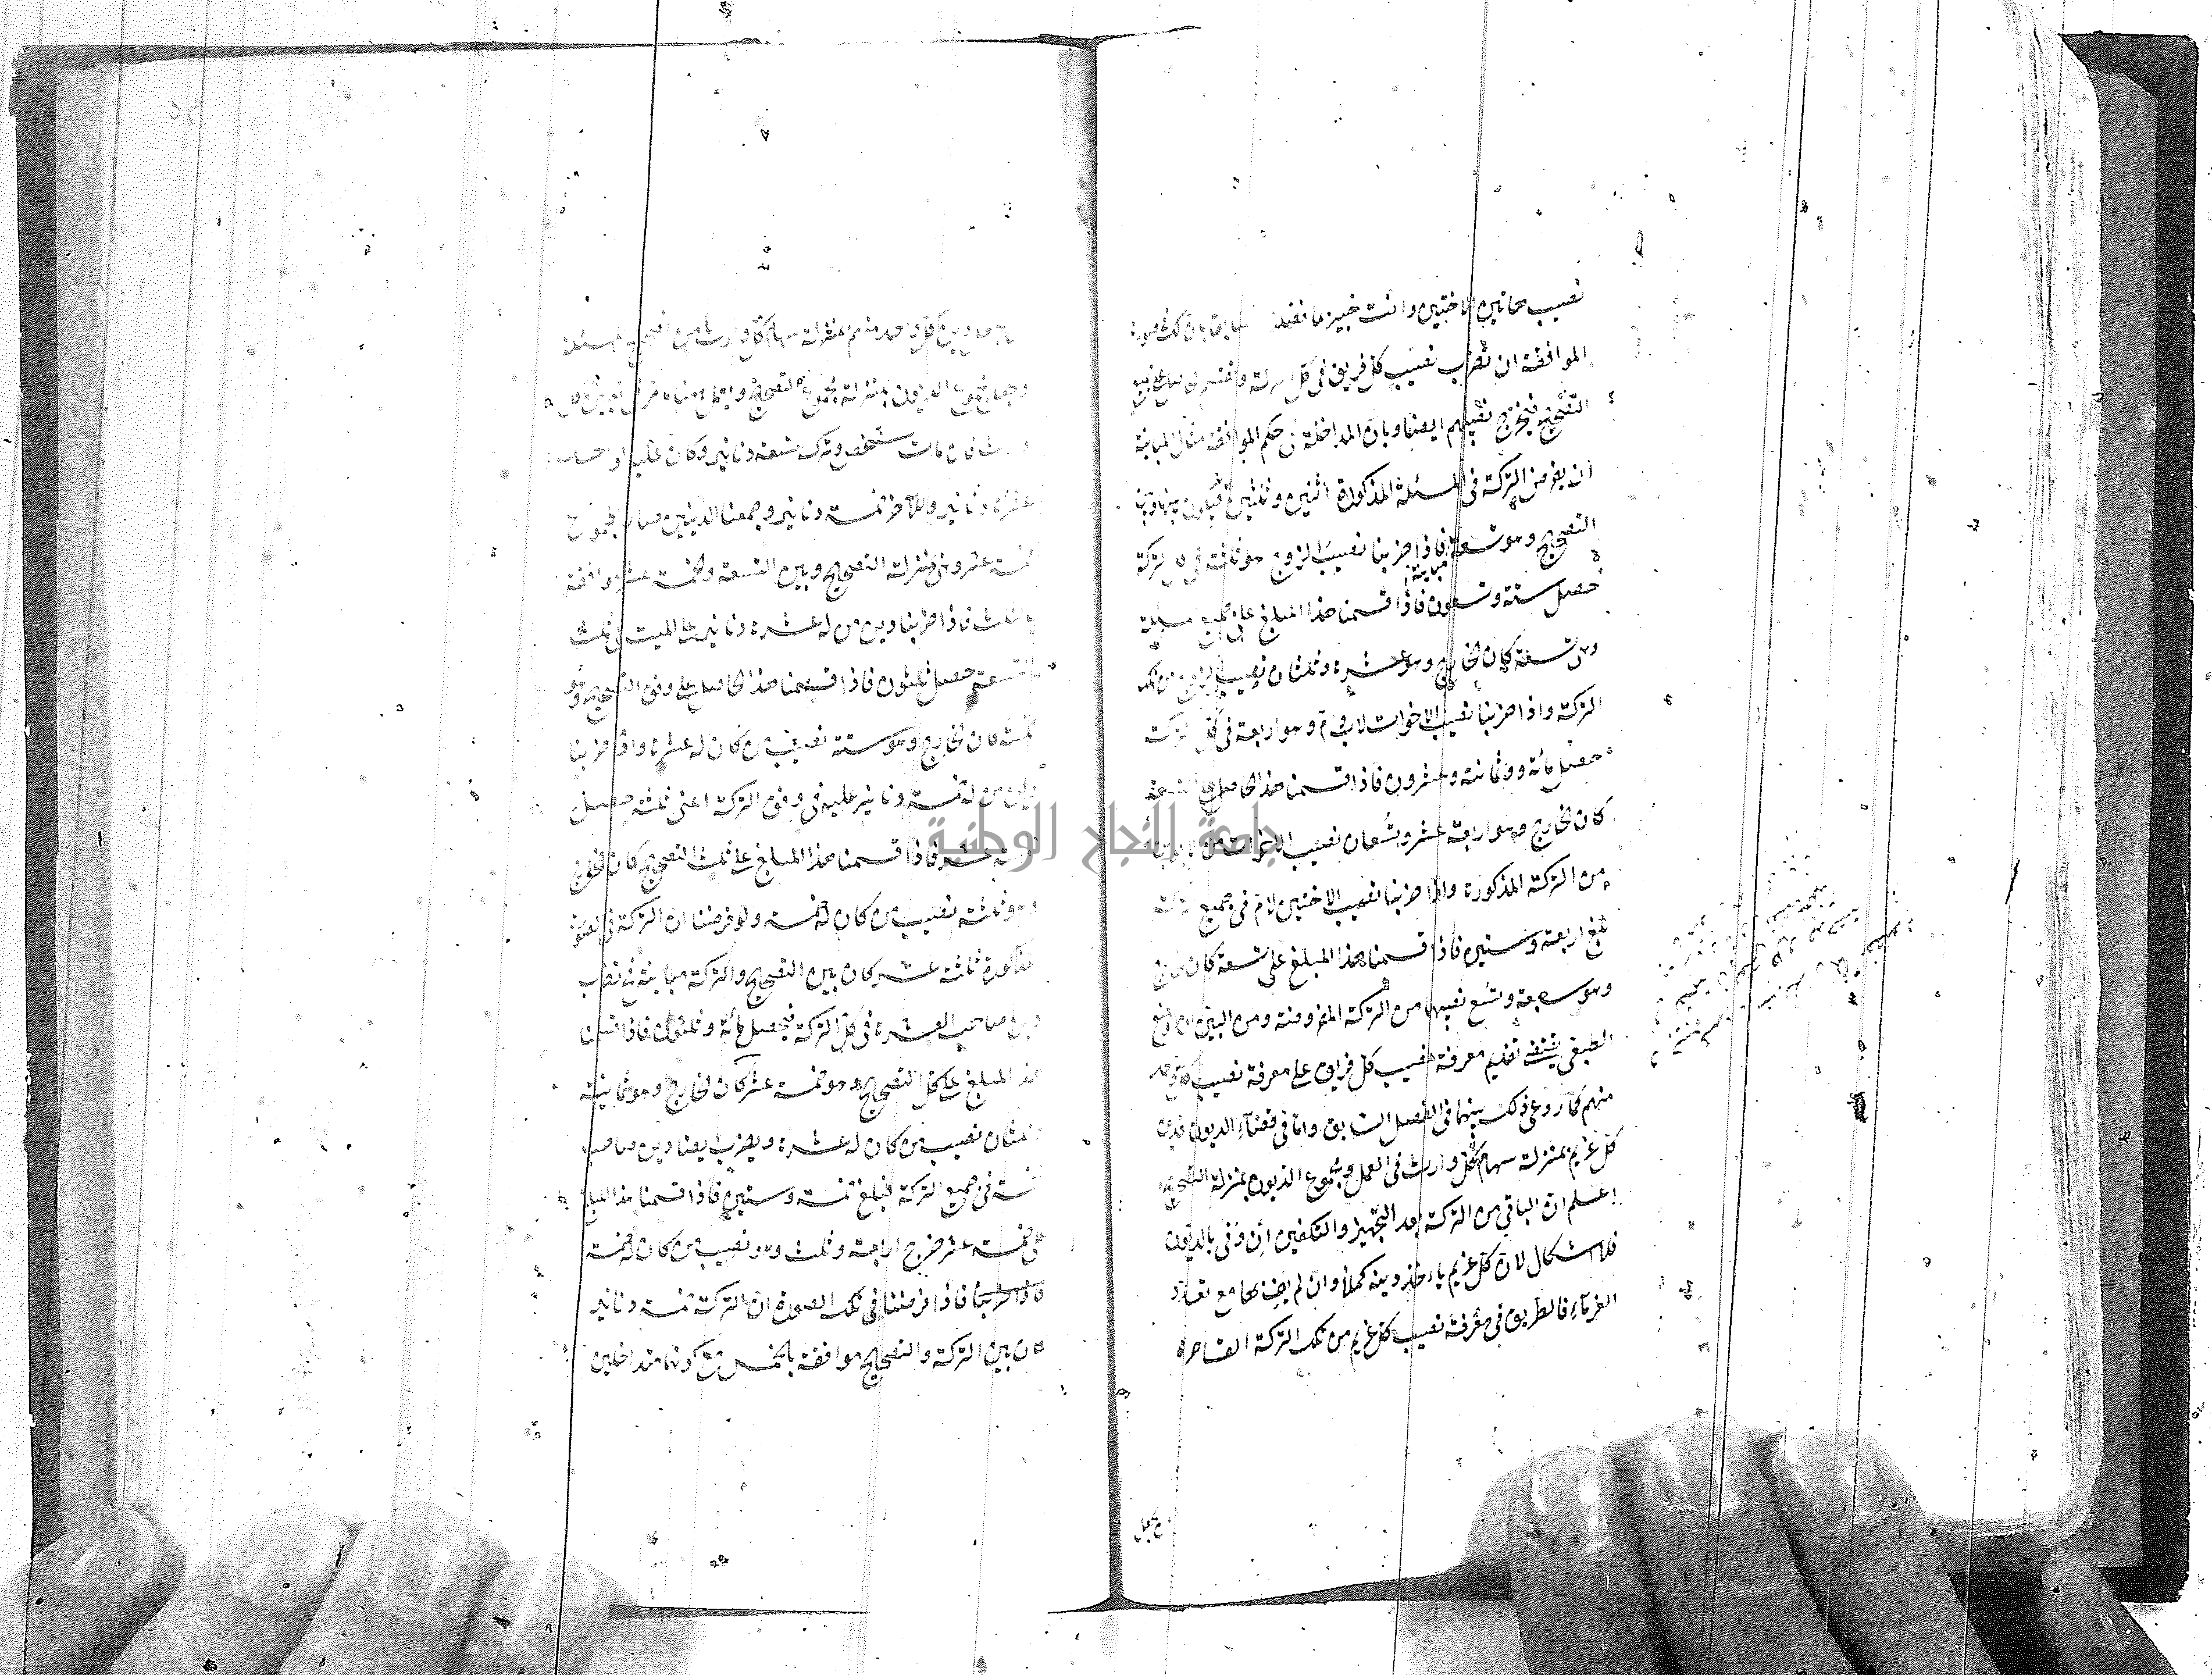 نصيب هاتين الاختين وانت خبير بما نفيد سابقا بان لك في صورة
الموافقة ان تضرب نصيب كل فريق في كل التركة وتقسم الحاصل على جميع
التصحيح فيخرج نصيبهم ايضا وبان المداخلة في حكم الموافقة مثال المباينة
ان يفرض التركة في المسئلة المذكورة اثنين وثلثين فيكون بينها وبين
التصحيح وهو تسعة مباينة فاذا ضربنا نصيب الزوج هو ثلثة في كل التركة
حصل ستة وتسعون فاذا قسمنا هذا المبلغ على جميع مسئلة
وهي تسعة كان الخارج وهو عشرة وثلثان نصيب الزوج من تلك
التركة واذا ضربنا نصيب الاخوات لاب وام وهو اربعة في كل التركة
حصل مائة وثمانية وعشرون فاذا قسمنا هذا الحاصل على التسعة
كان الخارج وهو اربعة عشر وتسعان نصيب الاخوات من
من التركة المذكورة واذا ضربنا نصيب الاختين لام في جميع التركة
بلغ اربعة وستين فاذا قسمنا هذا المبلغ على تسعة كان الخارج
وهو سبعة وتسع نصيبهما من التركة المفروضة ومن البين ان الوضع
الطبيعي يقتضي تقديم معرفة نصيب كل فريق على معرفة نصيب كل واحد
منهم كما روعي ذلك بينهما في الفصل السابق واما في قضاء الديون فدين
كل غريم بمنزلة سهام كل وارث في العمل ومجموع الديون بمنزلة التصحيح
اعلم ان الباقي من التركة بعد التجهيز والتكفين ان وفى بالديون
فلا اشكال لان كل غريم يأخذ دينه كملا وان لم يف بها مع تعدد
الغرماء فالطريق في معرفة نصيب كل غريم من تلك التركة القاصرة
دين كل واحد منهم بمنزلة سهام كل وارث من تصحيح المسئلة
وجعل مجموع الديون بمنزلة مجموع التصحيح ويعمل
فان مات شخص وترك تسعة دنانير وكان عليه لواحد
عشرة دنانير وللآخر خمسة دنانير وجمعنا الدينين صار المجموع
خمسة عشر وهي بمنزلة التصحيح وبين التسعة وخمسة عشر موافقة
بالثلث فاذا ضربنا دين من له عشرة دنانير على الميت في ثلث
التسعة حصل ثلثون فاذا قسمنا هذا الحاصل على وفق التصحيح وهو
خمسة كان الخارج وهو ستة نصيب من كان له عشرة واذا ضربنا
دين من له خمسة دنانير عليه في وفق التركة اعني ثلثة حصل
خمسة عشر فاذا قسمنا هذا المبلغ على ثلث التصحيح كان الخارج
وهو ثلثة نصيب من كان له خمسة ولو فرضنا ان التركة في الصورة
المذكورة ثلثة عشر كان بين التصحيح والتركة مباينة فتضرب
دين صاحب العشرة في كل التركة فيحصل مائة وثلثون فاذا قسمنا
هذا المبلغ على كل التصحيح وهو خمسة عشر كان الخارج وهو ثمانية
وثلثان نصيب من كان له عشرة ويضرب ايضا دين صاحب
خمسة في جميع التركة فبلغ خمسة وستين فاذا قسمنا هذا المبلغ
على خمسة عشر خرج اربعة وثلث وهو نصيب من كان له خمسة
فاذا فرضنا في تلك الصورة ان التركة خمسة دنانير
كان بين التركة والتصحيح موافقة بالخمس مع كونهما متداخلين
جامعة النجاح الوطنية